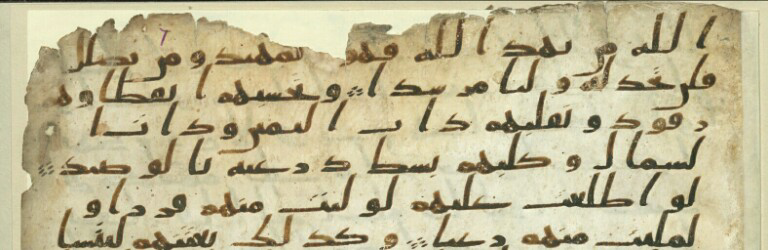 الله من يهد الله فهو المهتد ومن يضلل
فلن تجد له وليا مرشدا وتحسبهم ايقاظا وهم
رقود ونقلبهم ذات اليمين وذات ا
لشمال وكلبهم بسط ذرعيه بالوصيد
لو اطلعت عليهم لوليت منهم فررا و
لملئت منهم رعبا وكذلك بعثنهم ليتسا